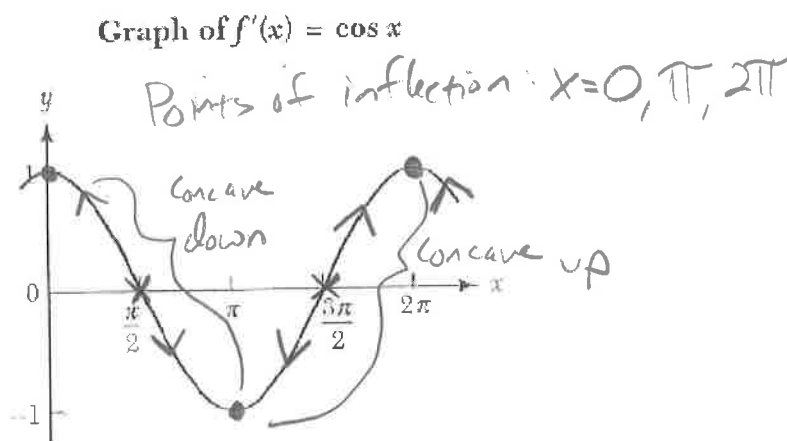 Graph of f'(x) = cos x
Points of inflection: x=0, π, 2π
y
1
concave
down
concave up
0
π/2
π
3π/2
2π
x
-1